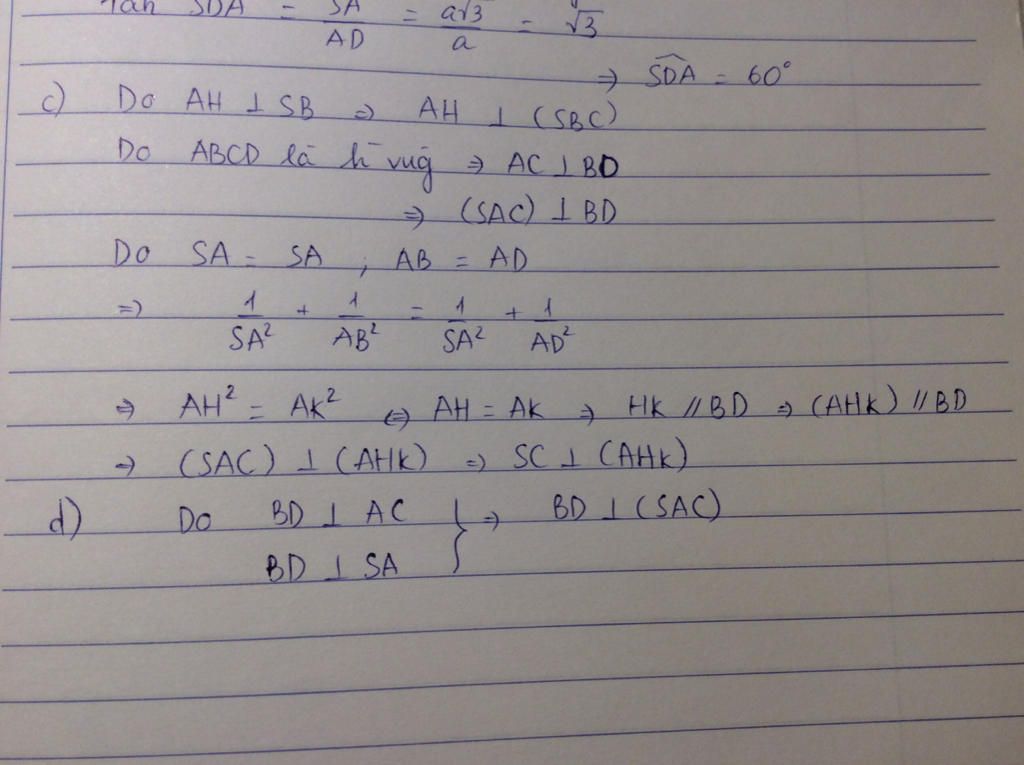 Tan SDA = SA/AD = a√3/a = √3
⇒ SDA = 60°
c) Do AH ⊥ SB ⇒ AH ⊥ (SBC)
Do ABCD là h vug ⇒ AC ⊥ BD
⇒ (SAC) ⊥ BD
Do SA = SA ; AB = AD
=> 1/SA² + 1/AB² = 1/SA² + 1/AD²
⇒ AH² = AK² ⇔ AH = AK ⇒ HK // BD ⇒ (AHK) // BD
⇒ (SAC) ⊥ (AHK) ⇒ SC ⊥ (AHK)
d) Do BD ⊥ AC } ⇒ BD ⊥ (SAC)
BD ⊥ SA